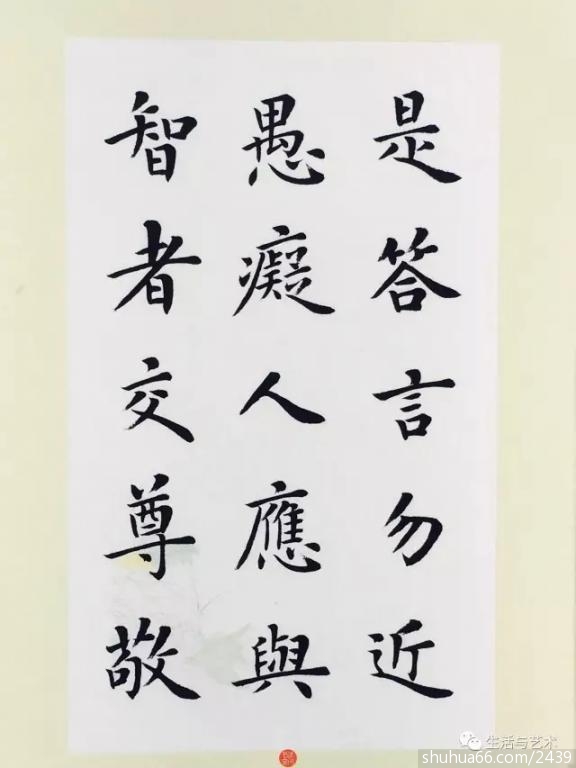 是答言勿近
愚癡人應與
智者交尊敬
生活与艺术
shuhua66.com/2439